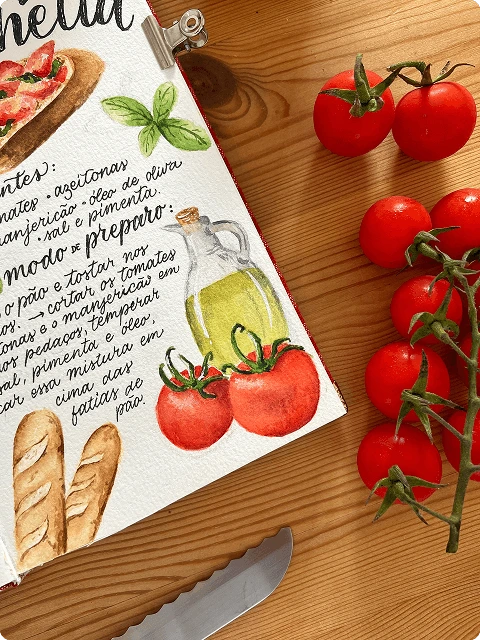 hetta
ntes:
mates • azeitonas
manjericão • óleo de oliva
• sal e pimenta.
modo de preparo:
o pão e tostar nos
os. → cortar os tomates
tonas e o manjericão em
nos pedaços, temperar
sal, pimenta e óleo,
car essa mistura em
cima das
fatias de
pão.